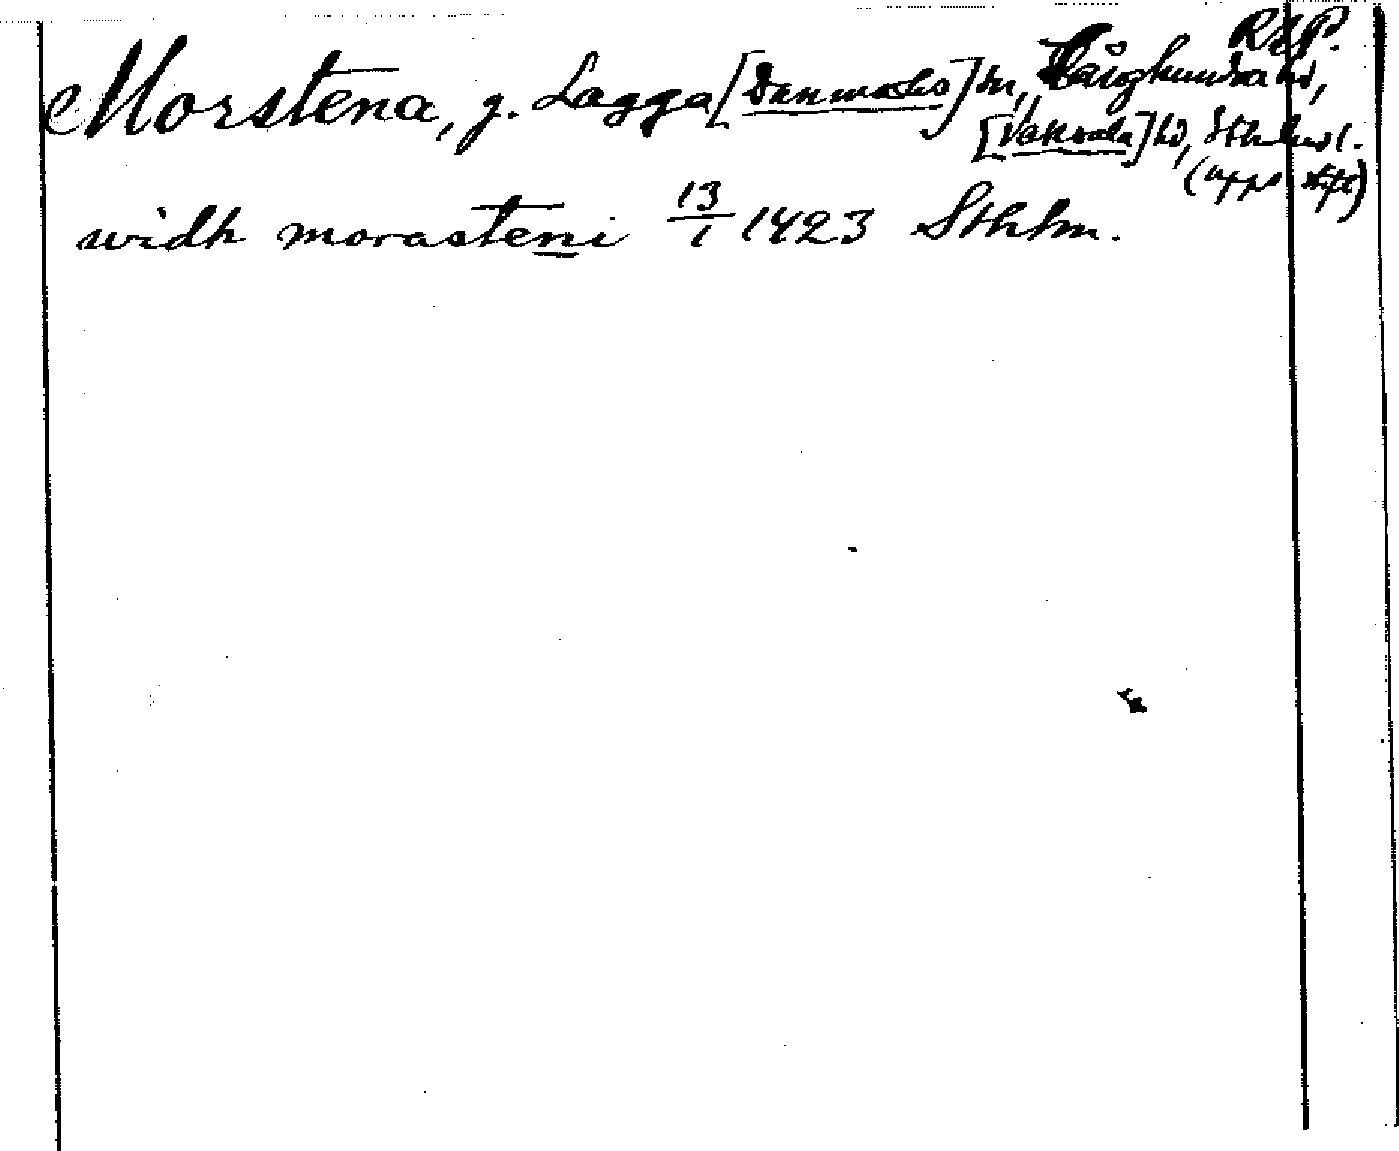 RAP.
Morstena, g. Lagga [Danmarks] sn, Långhundra hd,
[Vaksala] hd, Sthlms l.
(Upps. stift)
widh morasteni 13/1 1423 Sthlm.